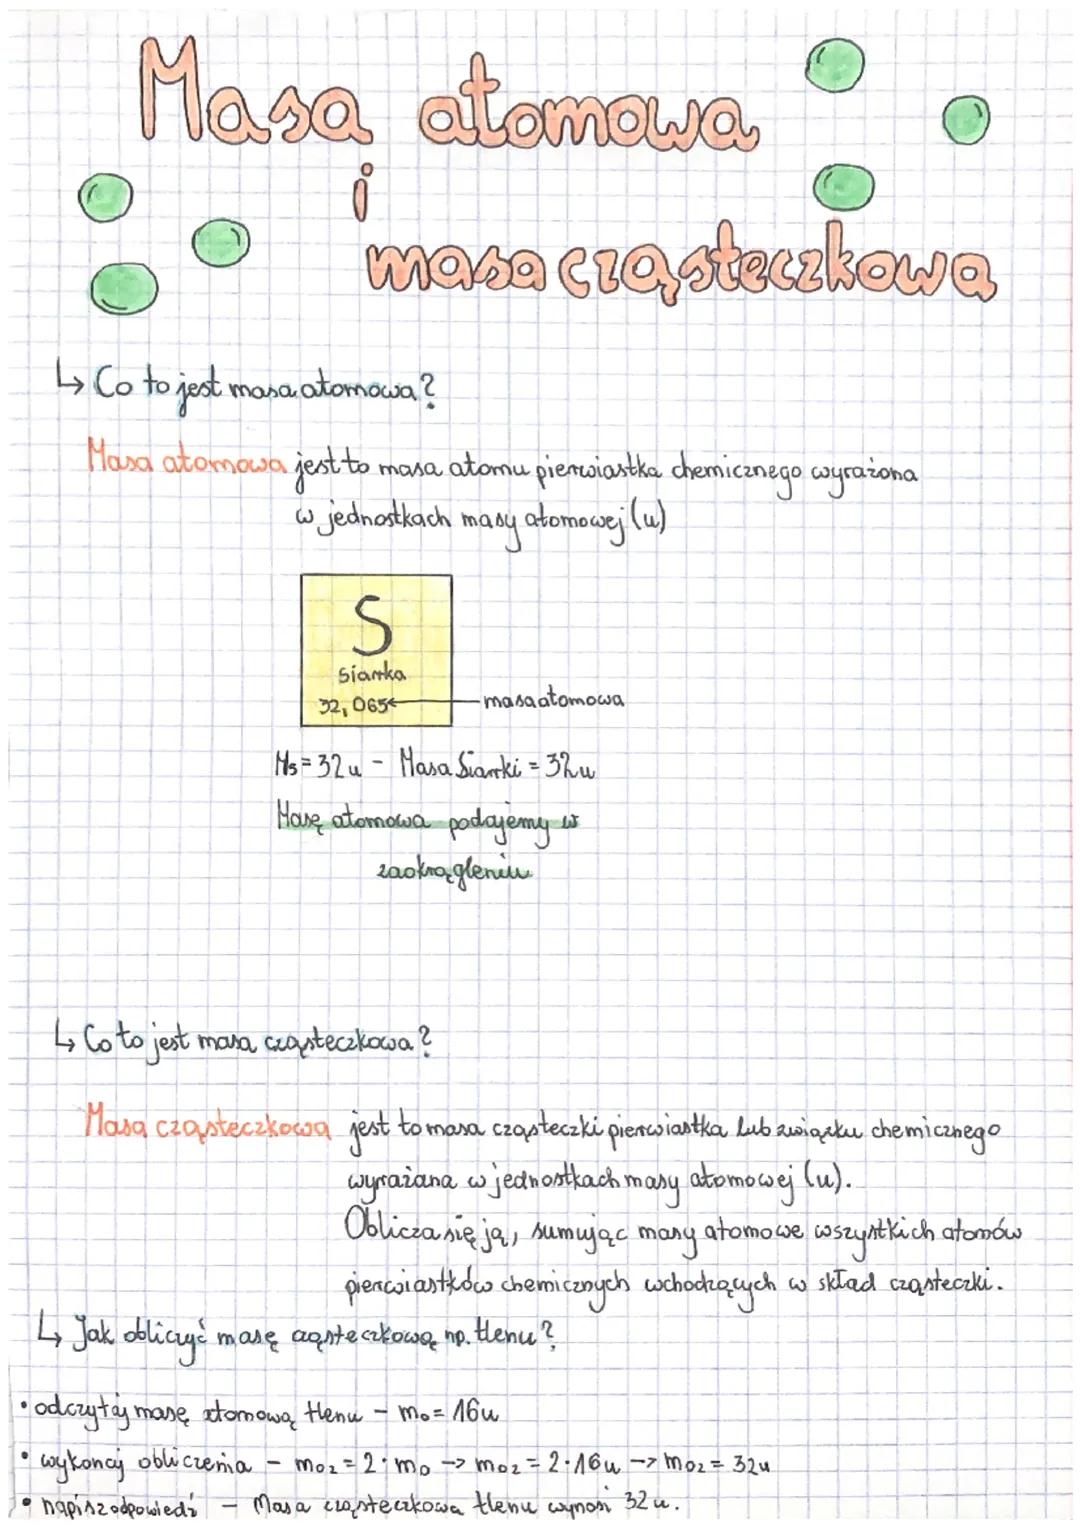 Masa atomowa
i
masa cząsteczkowa
↳ Co to jest masa atomowa?
Masa atomowa jest to masa atomu pierwiastka chemicznego wyrażona
w jednostkach masy atomowej (u)
S
siarka
32,065 ← masa atomowa
Ms = 32u - Masa Siarki = 32u
Masę atomowa podajemy w
zaokrągleniu
↳ Co to jest masa cząsteczkowa?
Masa cząsteczkowa jest to masa cząsteczki pierwiastka lub związku chemicznego
wyrażana w jednostkach masy atomowej (u).
Oblicza się ją, sumując masy atomowe wszystkich atomów
pierwiastków chemicznych wchodzących w skład cząsteczki.
↳ Jak obliczyć masę cząsteczkową np. tlenu?
• odczytaj masę atomową tlenu - mo = 16u
• wykonaj obliczenia - mo2 = 2·mo -> mo2 = 2·16u -> mo2 = 32u
• napisz odpowiedź - Masa cząsteczkowa tlenu wynosi 32u.